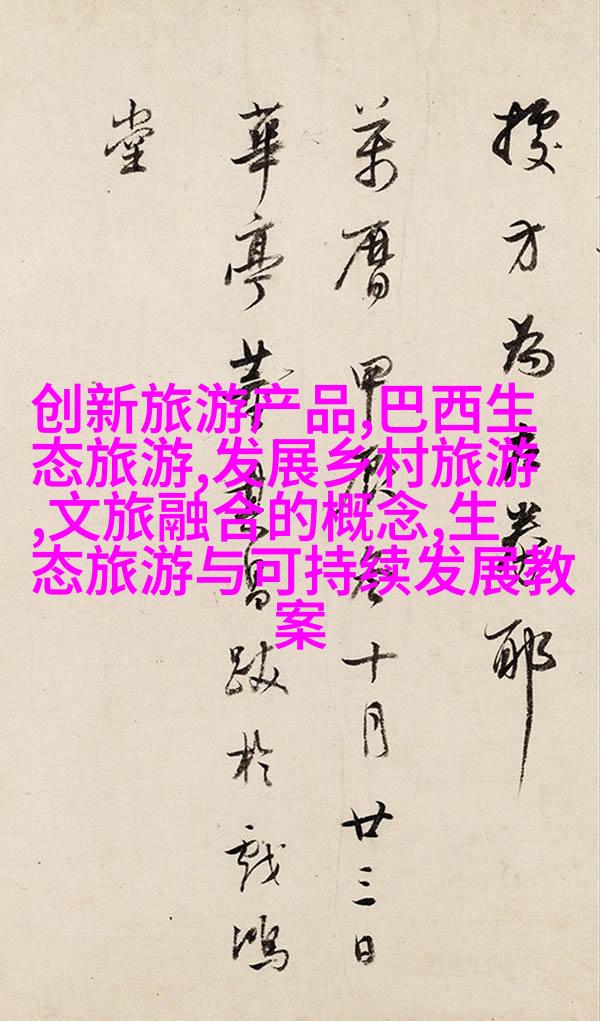 创新旅游产品,巴西生
态旅游,发展乡村旅游
,文旅融合的概念,生
态旅游与可持续发展教
案
方為耶
萬曆甲辰冬十月廿三日
華亭董其昌跋於戲鴻
堂